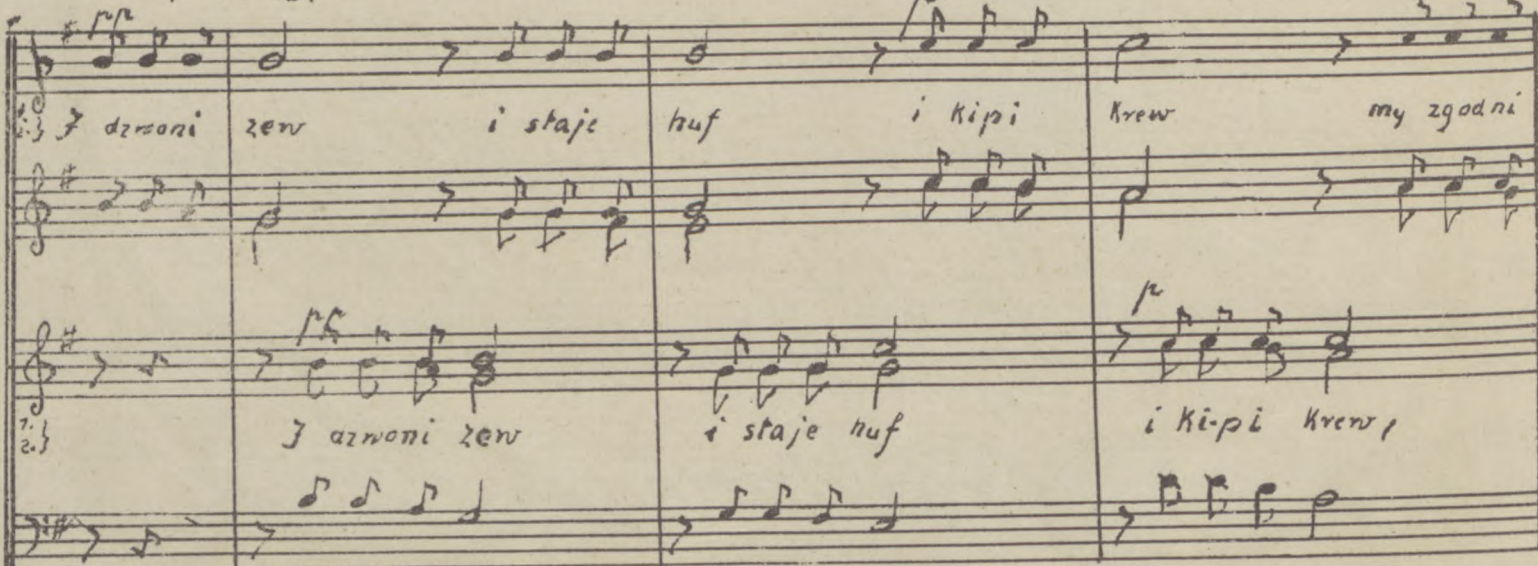 pp p
1. 2.} I dzwoni zew i staje huf i kipi krew my zgodni
pp p
1. 2.} I dzwoni zew i staje huf i ki-pi krew,